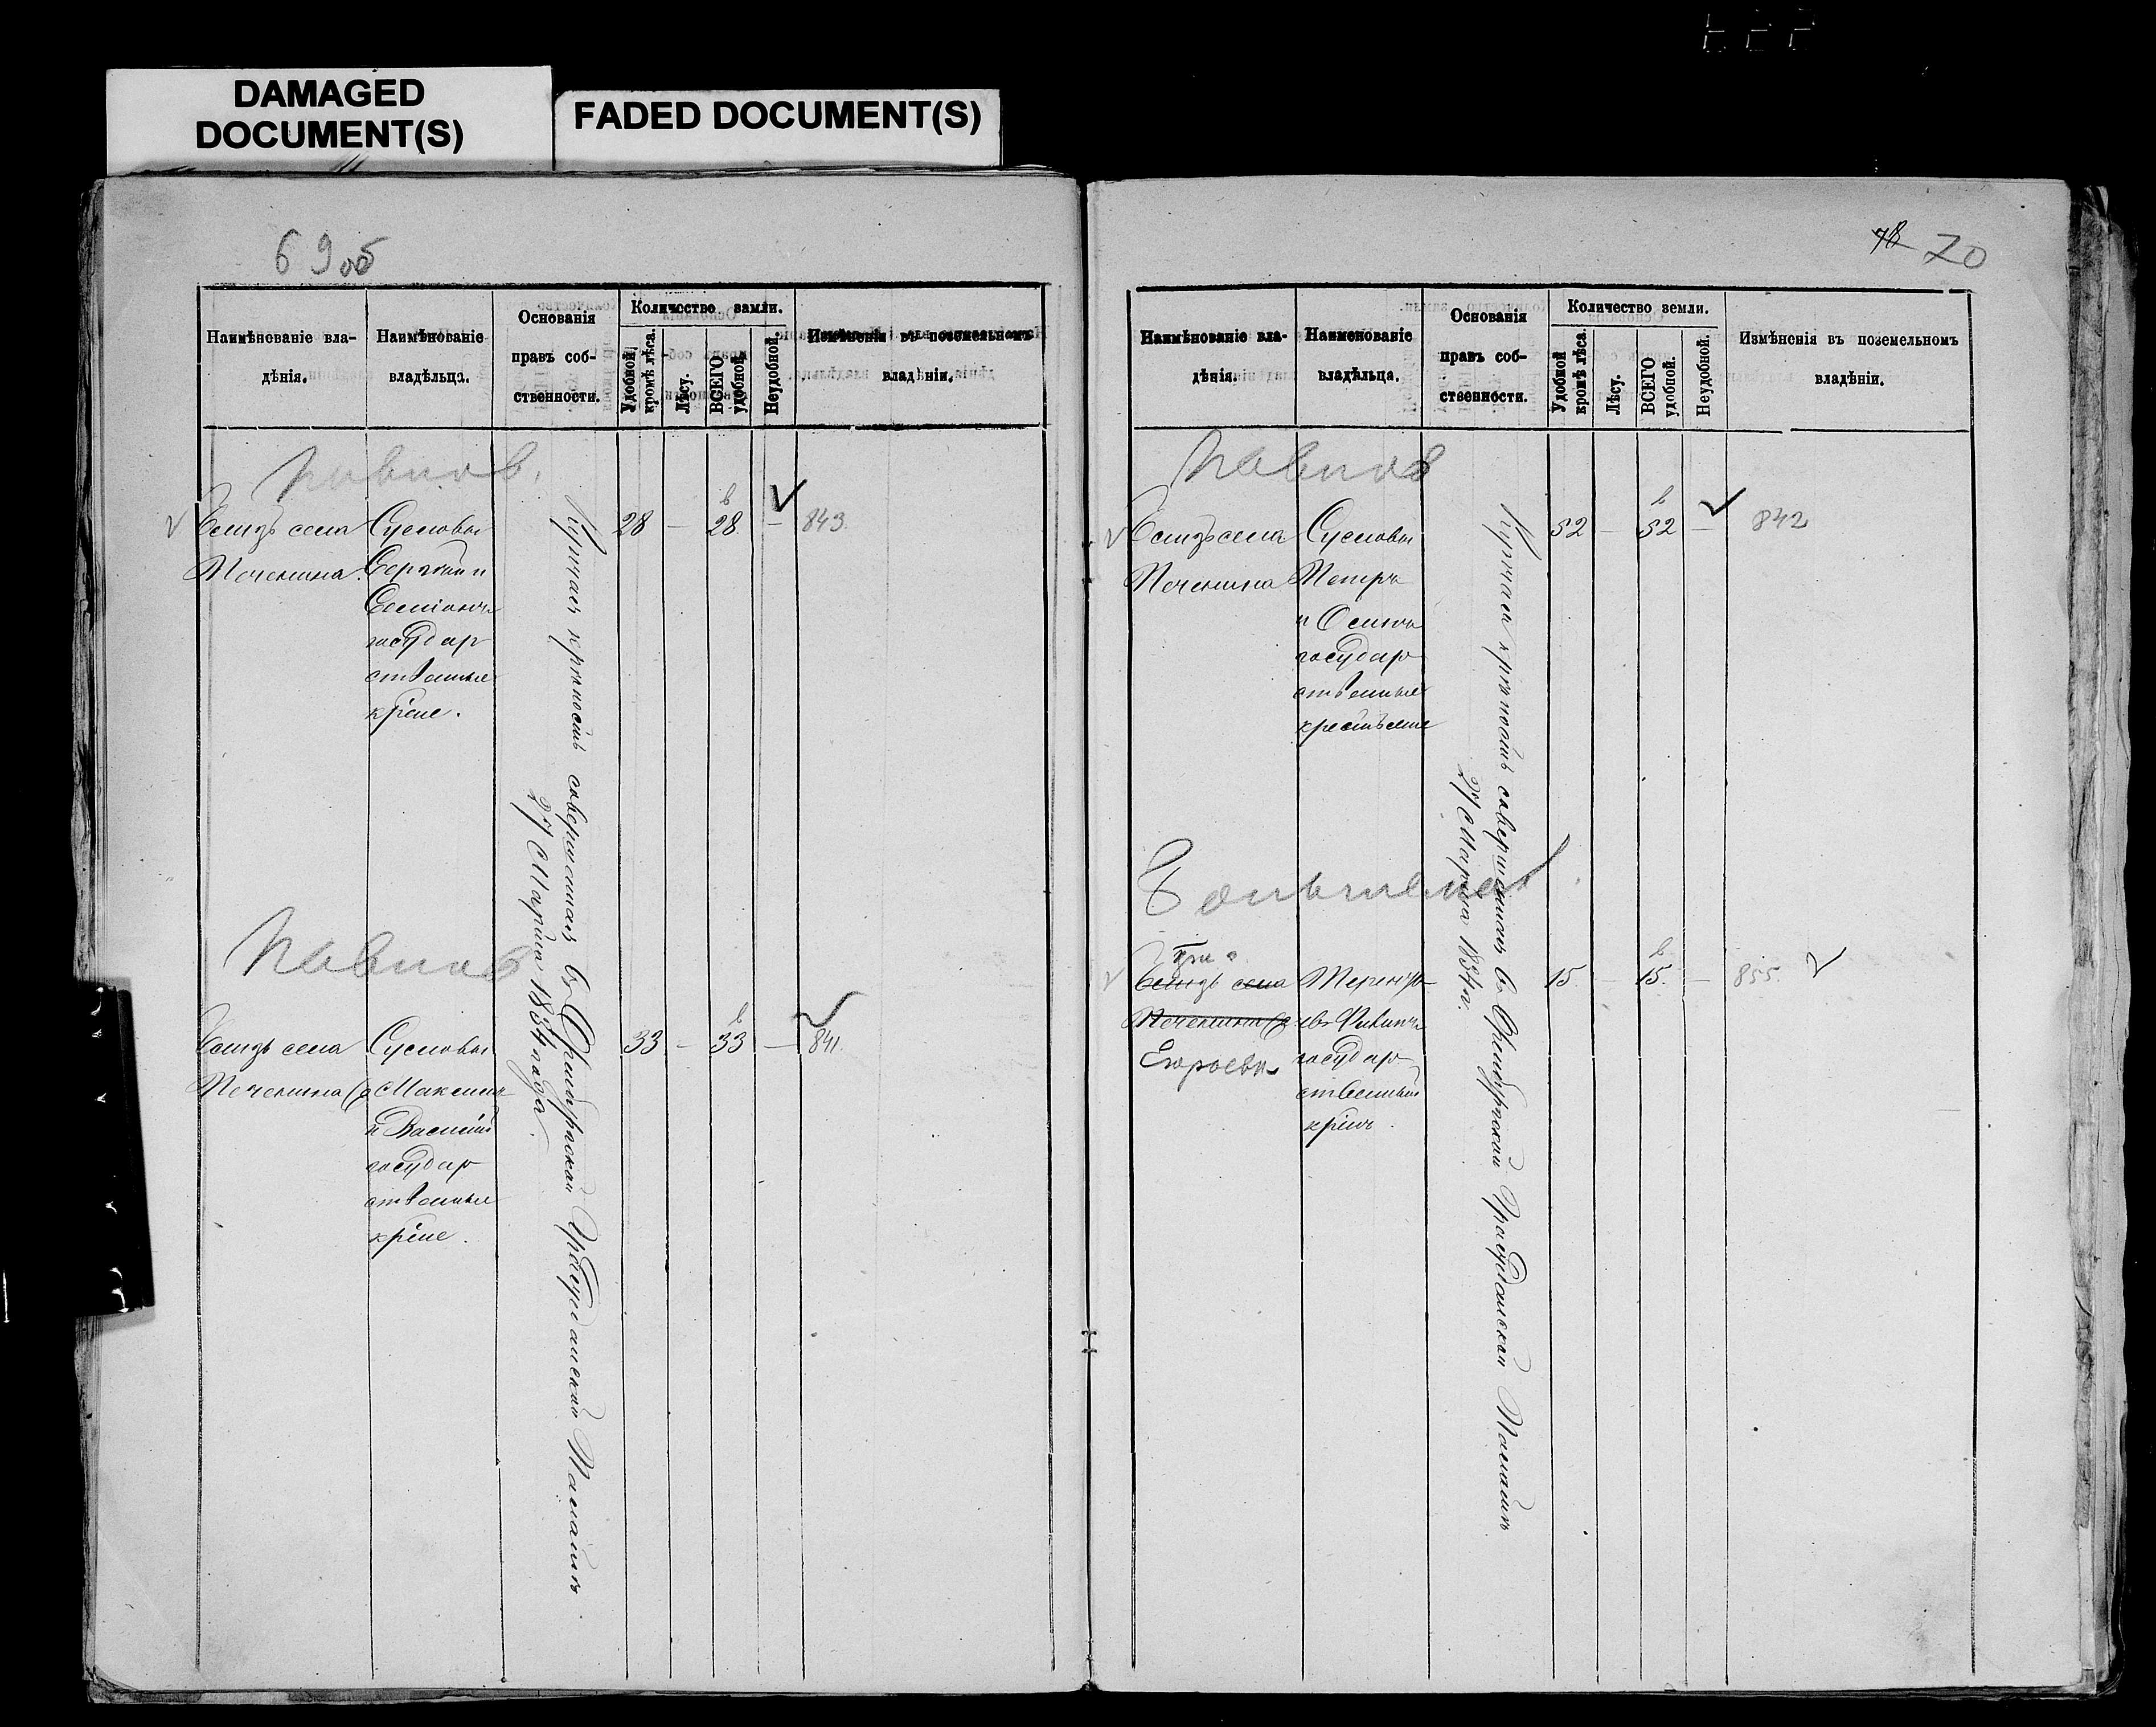 DAMAGED
DOCUMENT(S)
FADED DOCUMENT(S)
69об
Наимѣнованіе вла-
дѣнія.
Наимѣнованіе
владѣльца.
Основанія
правъ соб-
ственности.
Количество земли.
Удобной
кромѣ лѣса.
Лѣсу.
ВСЕГО
удобной.
Неудобной.
Измѣненія въ поземельномъ
владѣніи.
Павлов.
Близь села
Печенина.
Сусловы
Сергѣй и
государ
ственные
кр͠не.
28 — 28 — 843.
Купчая крѣпость совершенная въ Оренбургской Гражданской Палатѣ
27 Марта 1834 года.
Павлов
Близь села
Печенина
Сусловы
Максимъ
и Василій
государ
ственные
кр͠не.
33 — 33 — 841.
78 70
Наимѣнованіе вла-
дѣнія.
Наименованіе
владѣльца.
Основанія
правъ соб-
ственности.
Количество земли.
Удобной
кромѣ лѣса.
Лѣсу.
ВСЕГО
удобной.
Неудобной.
Измѣненія въ поземельномъ
владѣніи.
Павлов
Близь села
Печенина
Сусловы
Петръ
и Осипъ
государ
ственные
крестьяне
52 — 52 — 842
Купчая крѣпость совершенная въ Оренбургской Гражданской Палатѣ
27 Марта 1834 г.
при
Близь села
Печенина
государ
ственный
кр͠нъ.
15 — 15. — 855.